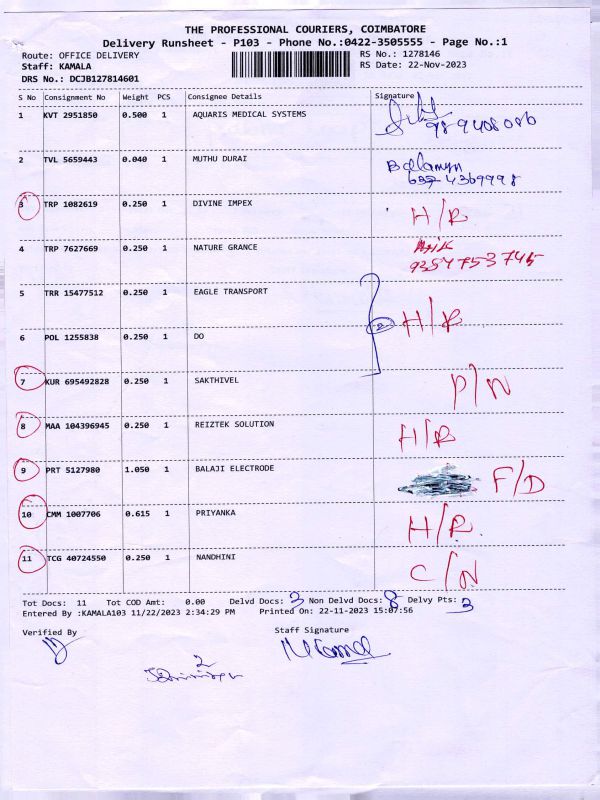 THE PROFESSIONAL COURIERS, COIMBATORE
Delivery Runsheet - P103 - Phone No.:0422-3505555 - Page No.:1
Route: OFFICE DELIVERY RS No.: 1278146
Staff: KAMALA RS Date: 22-Nov-2023
DRS No.: DCJB127814601
S No Consignment No Weight PCS Consignee Details Signature
1 KVT 2951850 0.500 1 AQUARIS MEDICAL SYSTEMS
989408086
2 TVL 5659443 0.040 1 MUTHU DURAI
4369998
3 TRP 1082619 0.250 1 DIVINE IMPEX H/R
4 TRP 7627669 0.250 1 NATURE GRANCE
9357753745
5 TRR 15477512 0.250 1 EAGLE TRANSPORT H/R
6 POL 1255838 0.250 1 DO
7 KUR 695492828 0.250 1 SAKTHIVEL P/N
8 MAA 104396945 0.250 1 REIZTEK SOLUTION H/R
9 PRT 5127980 1.050 1 BALAJI ELECTRODE F/D
10 CMM 1007706 0.615 1 PRIYANKA H/R
11 TCG 40724550 0.250 1 NANDHINI C/N
Tot Docs: 11 Tot COD Amt: 0.00 Delvd Docs: 3 Non Delvd Docs: 8 Delvy Pts: 3
Entered By :KAMALA103 11/22/2023 2:34:29 PM Printed On: 22-11-2023 15:07:56
Verified By Staff Signature
2